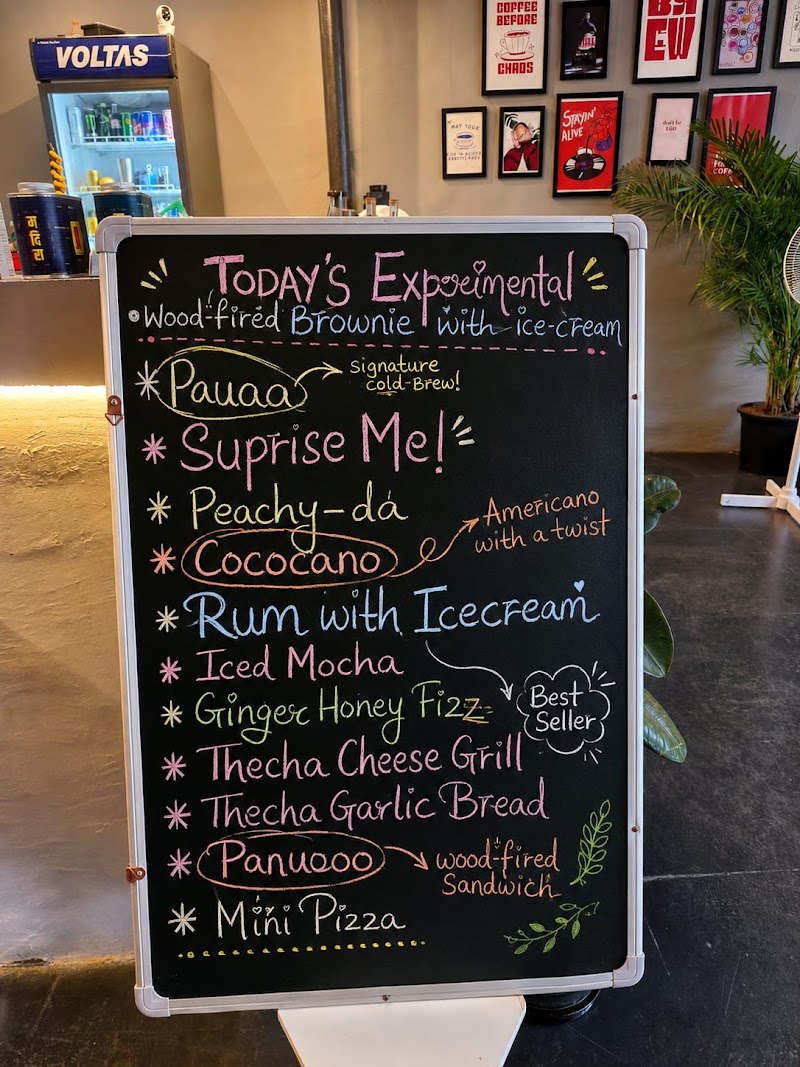 VOLTAS
COFFEE
BEFORE
CHAOS
STAYIN'
ALIVE
MAY YOUR
don't be
EGO
मदिरा
TODAY'S Experimental
Wood-fired Brownie with ice-cream
* Pauaa
signature
cold-Brew!
* Suprise Me!
* Peachy-dá
* Cococano
Americano
with a twist
* Rum with Icecream
* Iced Mocha
* Ginger Honey Fizz
Best
Seller
* Thecha Cheese Grill
* Thecha Garlic Bread
* Panuooo
wood-fired
Sandwich
* Mini Pizza